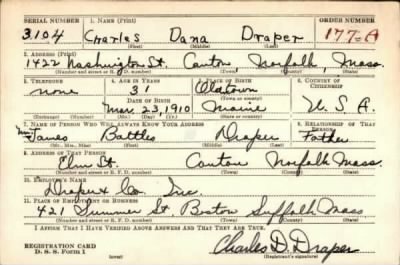 SERIAL NUMBER 1. NAME (Print) ORDER NUMBER
3104 Charles Dana Draper 1776A
(First) (Middle) (Last)
2. ADDRESS (Print)
1422 Washington St. Canton Norfolk, Mass.
(Number and street or R. F. D. number) (Town) (County) (State)
3. TELEPHONE 4. AGE IN YEARS 5. PLACE OF BIRTH 6. COUNTRY OF CITIZENSHIP
none 31 Oldtown
DATE OF BIRTH (Town or county)
Mar. 23, 1910 Maine U. S. A.
(Exchange) (Number) (Mo.) (Day) (Yr.) (State or country)
7. NAME OF PERSON WHO WILL ALWAYS KNOW YOUR ADDRESS 8. RELATIONSHIP OF THAT PERSON
James Battles Draper Father
(Mr., Mrs., Miss) (First) (Middle) (Last)
9. ADDRESS OF THAT PERSON
Elm St. Canton Norfolk Mass.
(Number and street or R. F. D. number) (Town) (County) (State)
10. EMPLOYER'S NAME
Draper & Co. Inc.
11. PLACE OF EMPLOYMENT OR BUSINESS
421 Summer St. Boston Suffolk Mass
(Number and street or R. F. D. number) (Town) (County) (State)
I AFFIRM THAT I HAVE VERIFIED ABOVE ANSWERS AND THAT THEY ARE TRUE.
REGISTRATION CARD Charles D. Draper
D. S. S. Form 1 (over) (Registrant's signature)